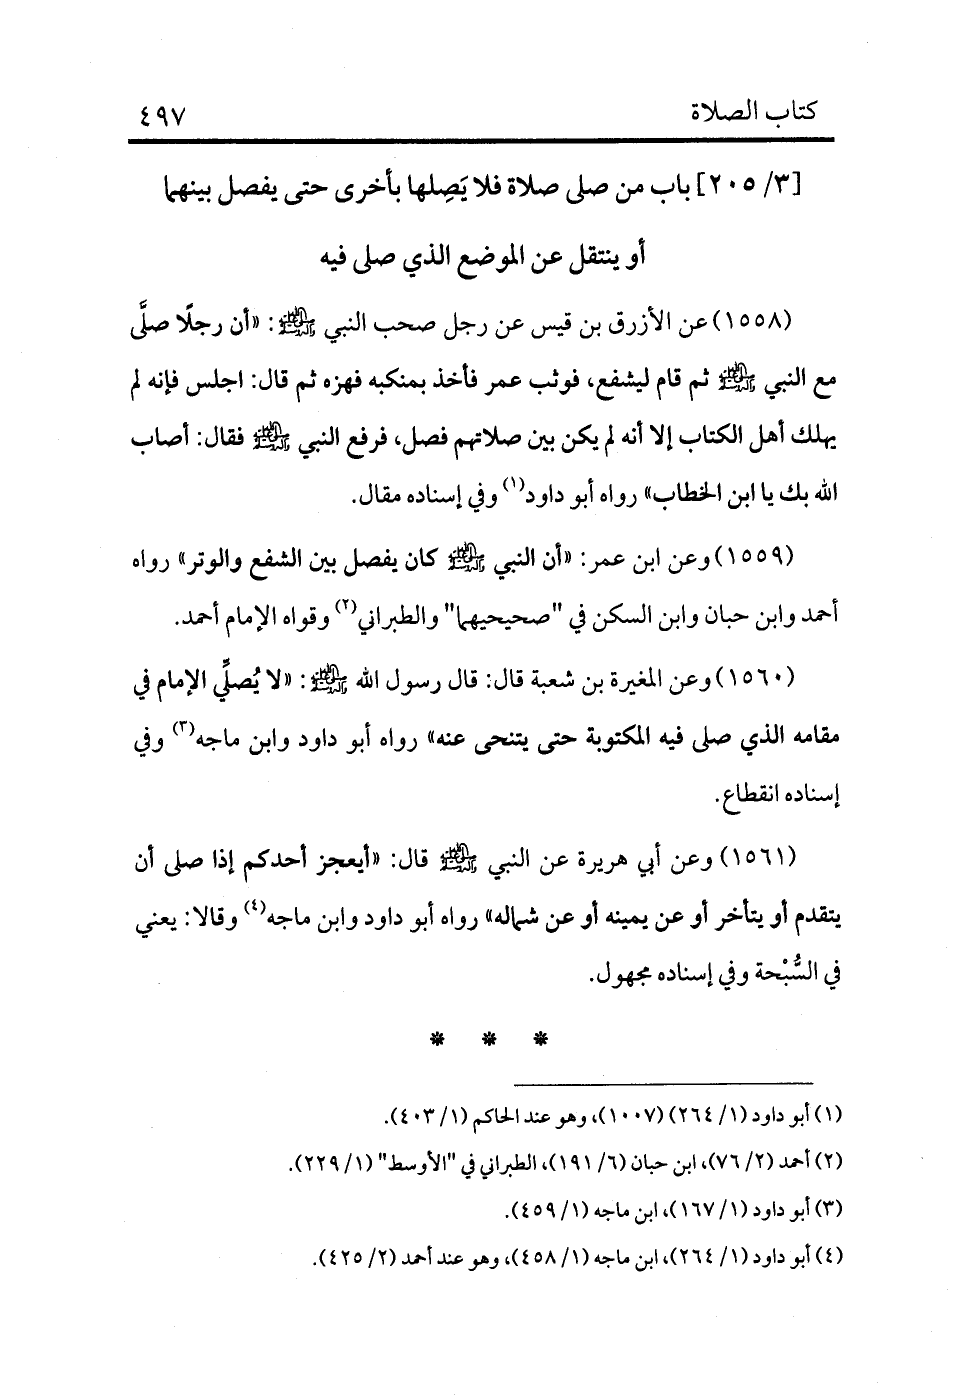 كتاب الصلاة ٤٩٧
[٣/ ٢٠٥] باب من صلى صلاة فلا يَصِلها بأخرى حتى يفصل بينهما
أو ينتقل عن الموضع الذي صلى فيه
(١٥٥٨) عن الأزرق بن قيس عن رجل صحب النبي ﷺ: «أن رجلًا صلَّى
مع النبي ﷺ ثم قام ليشفع، فوثب عمر فأخذ بمنكبه فهزه ثم قال: اجلس فإنه لم
يهلك أهل الكتاب إلا أنه لم يكن بين صلاتهم فصل، فرفع النبي ﷺ فقال: أصاب
الله بك يا ابن الخطاب» رواه أبو داود(١) وفي إسناده مقال.
(١٥٥٩) وعن ابن عمر: «أن النبي ﷺ كان يفصل بين الشفع والوتر» رواه
أحمد وابن حبان وابن السكن في "صحيحيهما" والطبراني(٢) وقواه الإمام أحمد.
(١٥٦٠) وعن المغيرة بن شعبة قال: قال رسول الله ﷺ: «لا يُصلِّي الإمام في
مقامه الذي صلى فيه المكتوبة حتى يتنحى عنه» رواه أبو داود وابن ماجه(٣) وفي
إسناده انقطاع.
(١٥٦١) وعن أبي هريرة عن النبي ﷺ قال: «أيعجز أحدكم إذا صلى أن
يتقدم أو يتأخر أو عن يمينه أو عن شماله» رواه أبو داود وابن ماجه(٤) وقالا: يعني
في السُّبْحة وفي إسناده مجهول.
* * *
(١) أبو داود (١/ ٢٦٤) (١٠٠٧)، وهو عند الحاكم (١/ ٤٠٣).
(٢) أحمد (٢/ ٧٦)، ابن حبان (٦/ ١٩١)، الطبراني في "الأوسط" (١/ ٢٢٩).
(٣) أبو داود (١/ ١٦٧)، ابن ماجه (١/ ٤٥٩).
(٤) أبو داود (١/ ٢٦٤)، ابن ماجه (١/ ٤٥٨)، وهو عند أحمد (٢/ ٤٢٥).